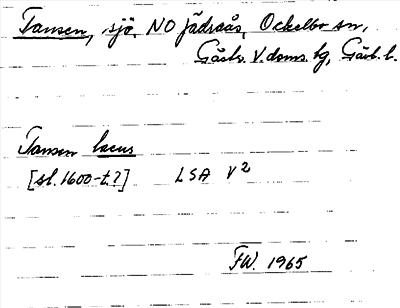 Tansen, sjö, NO Jädraås, Ockelbo sn,
Gästr. V. doms. tg, Gävl. l.
Tansen lacus
[sl. 1600-t.?] LSA V2
FW. 1965